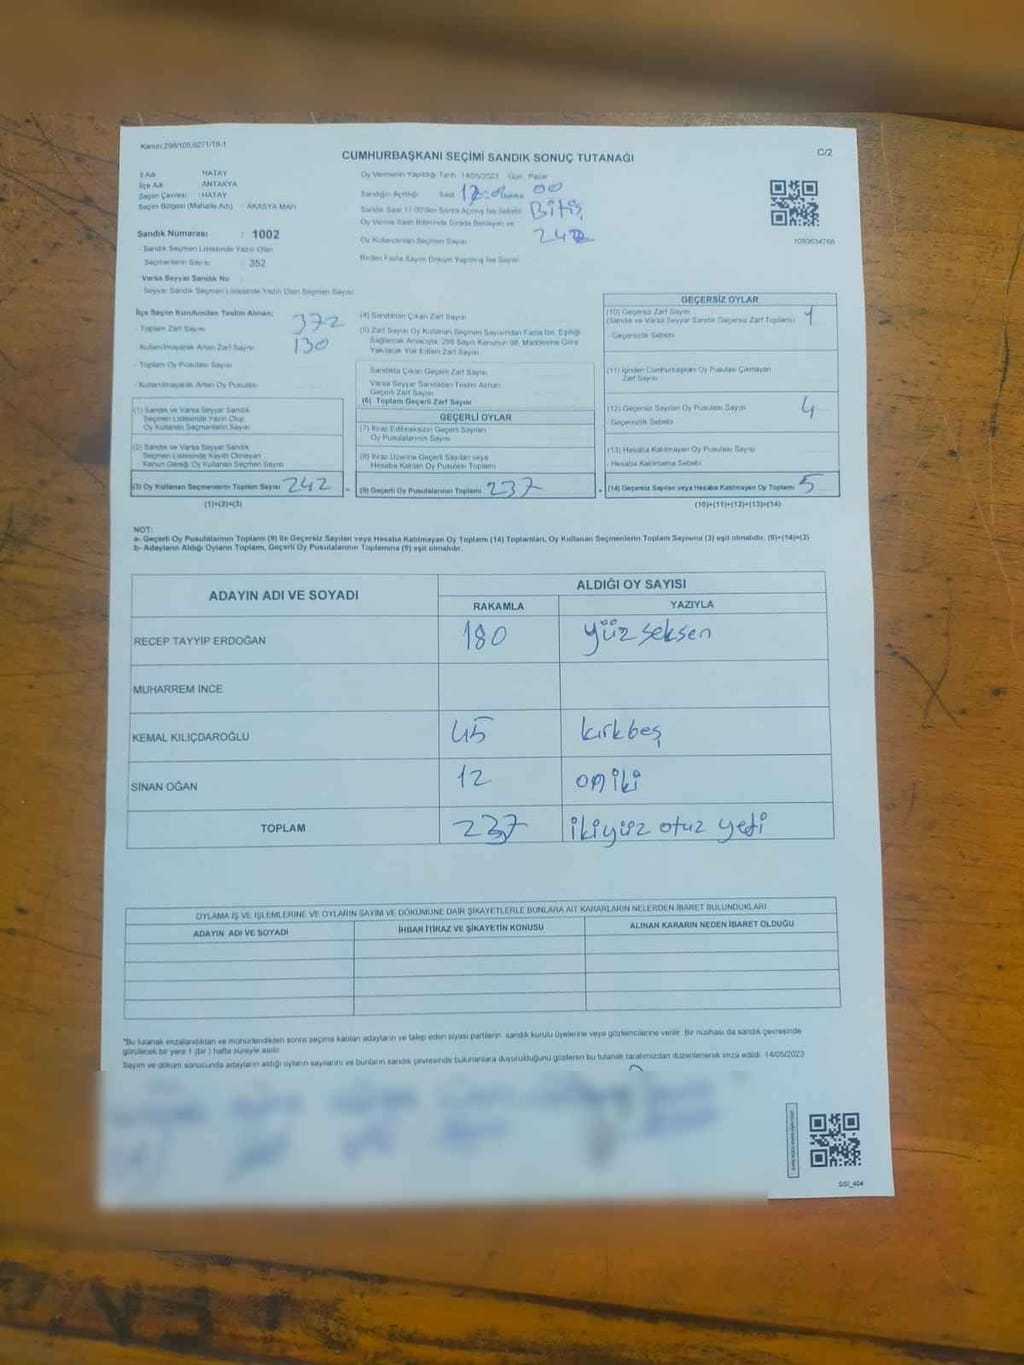 Kanun:298/105,6271/18-1
CUMHURBAŞKANI SEÇİMİ SANDIK SONUÇ TUTANAĞI
C/2
İl Adı : HATAY
İlçe Adı : ANTAKYA
Seçim Çevresi : HATAY
Seçim Bölgesi (Mahalle Adı) : AKASYA MAH
Sandık Numarası : 1002
- Sandık Seçmen Listesinde Yazılı Olan
Seçmenlerin Sayısı : 352
Varsa Seyyar Sandık No
Seyyar Sandık Seçmen Listesinde Yazılı Olan Seçmen Sayısı
Oy Vermenin Yapıldığı Tarih: 14/05/2023 Gün: Pazar
Sandığın Açıldığı Saat Dakika 00
Bitiş
Oy Kullandırılan Seçmen Sayısı 242
Birden Fazla Sayım Döküm Yapılmış İse Sayısı
1093634768
İlçe Seçim Kurulundan Teslim Alınan;
- Toplam Zarf Sayısı 372
- Kullanılmayarak Artan Zarf Sayısı 130
- Toplam Oy Pusulası Sayısı
- Kullanılmayarak Artan Oy Pusulası
(1) Sandık ve Varsa Seyyar Sandık
Seçmen Listesinde Yazılı Olup
Oy Kullanan Seçmenlerin Sayısı
(2) Sandık ve Varsa Seyyar Sandık
Seçmen Listesinde Kayıtlı Olmayan
Kanun Gereği Oy Kullanan Seçmen Sayısı
(3) Oy Kullanan Seçmenlerin Toplam Sayısı 242
(1)+(2)=(3)
(4) Sandıktan Çıkan Zarf Sayısı
(5) Zarf Sayısı Oy Kullanan Seçmen Sayısından Fazla İse, Eşitliği
Sağlamak Amacıyla, 298 Sayılı Kanunun 98. Maddesine Göre
Yakılarak Yok Edilen Zarf Sayısı
Sandıkta Çıkan Geçerli Zarf Sayısı
Varsa Seyyar Sandıktan Teslim Alınan
Geçerli Zarf Sayısı
(6) Toplam Geçerli Zarf Sayısı
GEÇERLİ OYLAR
(7) İtiraz Edilmeksizin Geçerli Sayılan
Oy Pusulalarının Sayısı
(8) İtiraz Üzerine Geçerli Sayılan veya
Hesaba Katılan Oy Pusulası Toplamı
(9) Geçerli Oy Pusulalarının Toplamı 237
GEÇERSİZ OYLAR
(10) Geçersiz Zarf Sayısı
(Sandık ve Varsa Seyyar Sandık Geçersiz Zarf Toplamı) 1
- Geçersizlik Sebebi
(11) İçinden Cumhurbaşkanı Oy Pusulası Çıkmayan
Zarf Sayısı
(12) Geçersiz Sayılan Oy Pusulası Sayısı 4
- Geçersizlik Sebebi
(13) Hesaba Katılmayan Oy Pusulası Sayısı
- Hesaba Katılmama Sebebi
(14) Geçersiz Sayılan veya Hesaba Katılmayan Oy Toplamı 5
(10)+(11)+(12)+(13)=(14)
NOT:
a- Geçerli Oy Pusulalarının Toplamı (9) ile Geçersiz Sayılan veya Hesaba Katılmayan Oy Toplamı (14) Toplamları, Oy Kullanan Seçmenlerin Toplam Sayısına (3) eşit olmalıdır. (9)+(14)=(3)
b- Adayların Aldığı Oyların Toplamı, Geçerli Oy Pusulalarının Toplamına (9) eşit olmalıdır.
ADAYIN ADI VE SOYADI
ALDIĞI OY SAYISI
RAKAMLA YAZIYLA
RECEP TAYYİP ERDOĞAN 180 yüz seksen
MUHARREM İNCE
KEMAL KILIÇDAROĞLU 45 kırkbeş
SİNAN OĞAN 12 on iki
TOPLAM 237 ikiyüz otuz yedi
OYLAMA İŞ VE İŞLEMLERİNE VE OYLARIN SAYIM VE DÖKÜMÜNE DAİR ŞİKAYETLERLE BUNLARA AİT KARARLARIN NELERDEN İBARET BULUNDUKLARI
ADAYIN ADI VE SOYADI İHBAR İTİRAZ VE ŞİKAYETİN KONUSU ALINAN KARARIN NEDEN İBARET OLDUĞU
*Bu tutanak imzalandıktan ve mühürlendikten sonra seçime katılan adayların ve talep eden siyasi partilerin sandık kurulu üyelerine veya gözlemcilerine verilir. Bir nüshası da sandık çevresinde
görülecek bir yere 1 (bir) hafta süreyle asılır.
Sayım ve döküm sonucunda adayların aldığı oyların sayılarını ve bunların sandık çevresinde bulunanlara duyurulduğunu gösteren bu tutanak tarafımızdan düzenlenerek imza edildi. 14/05/2023
SSI_404